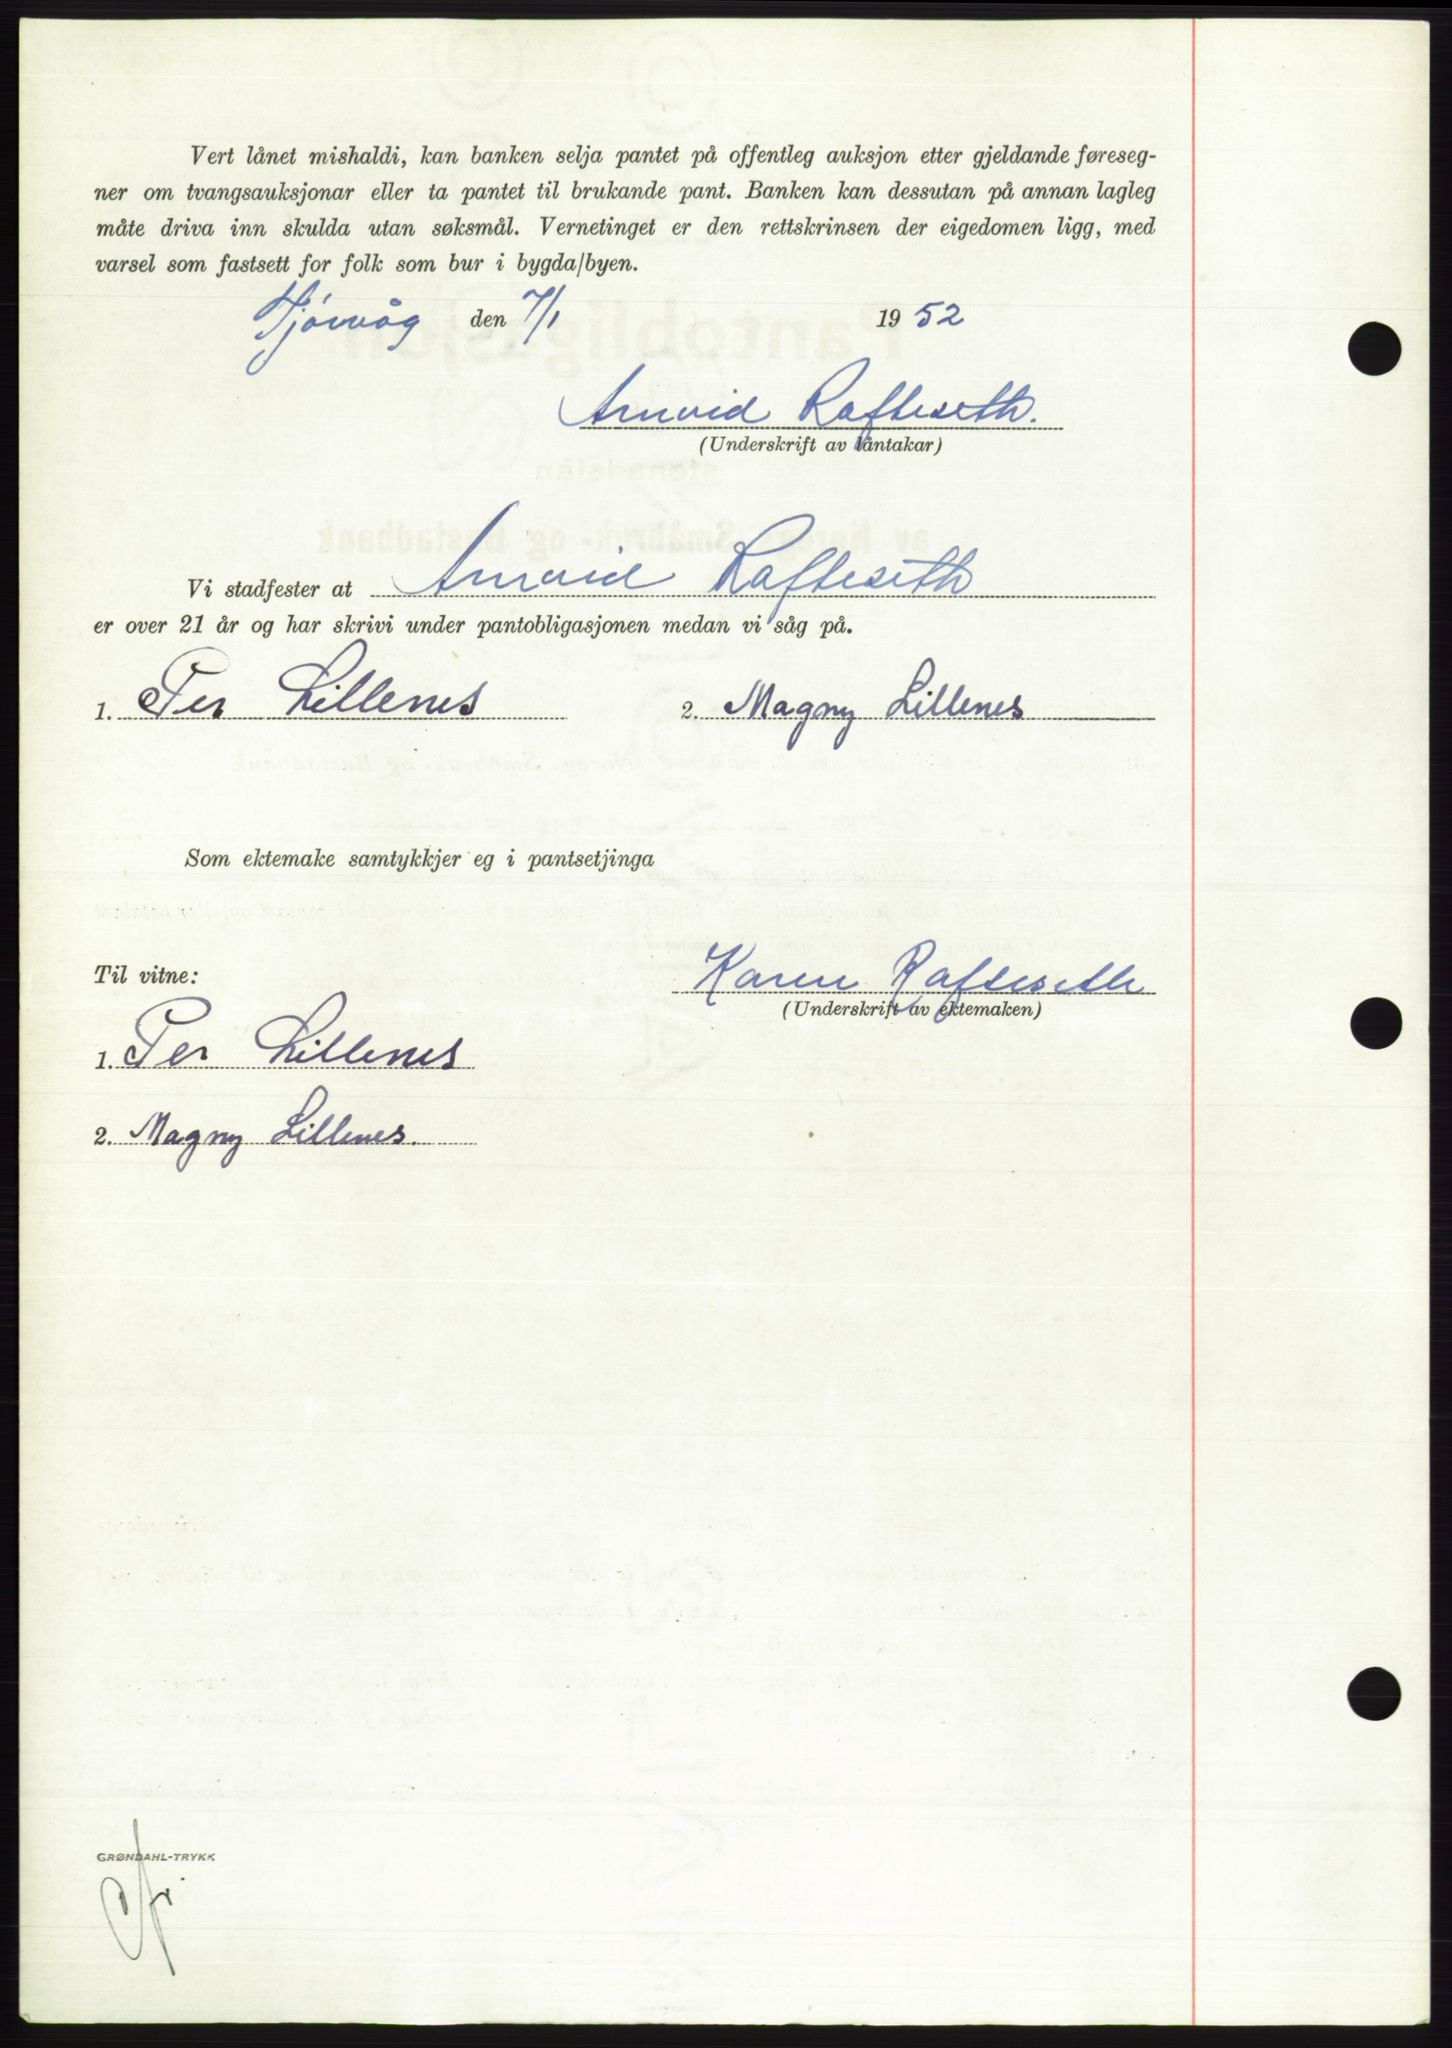 Vert lånet mishaldi, kan banken selja pantet på offentleg auksjon etter gjeldande føreseg-
ner om tvangsauksjonar eller ta pantet til brukande pant. Banken kan dessutan på annan lagleg
måte driva inn skulda utan søksmål. Vernetinget er den rettskrinsen der eigedomen ligg, med
varsel som fastsett for folk som bur i bygda/byen.
Tjørvåg den 7/1 1952
Arnvid Rafteseth.
(Underskrift av låntakar)
Vi stadfester at Arnvid Rafteseth
er over 21 år og har skrivi under pantobligasjonen medan vi såg på.
1. Per Lillenes 2. Magny Lillenes
Som ektemake samtykkjer eg i pantsetjinga
Til vitne: Karen Rafteseth
(Underskrift av ektemaken)
1. Per Lillenes
2. Magny Lillenes.
GRØNDAHL-TRYKK